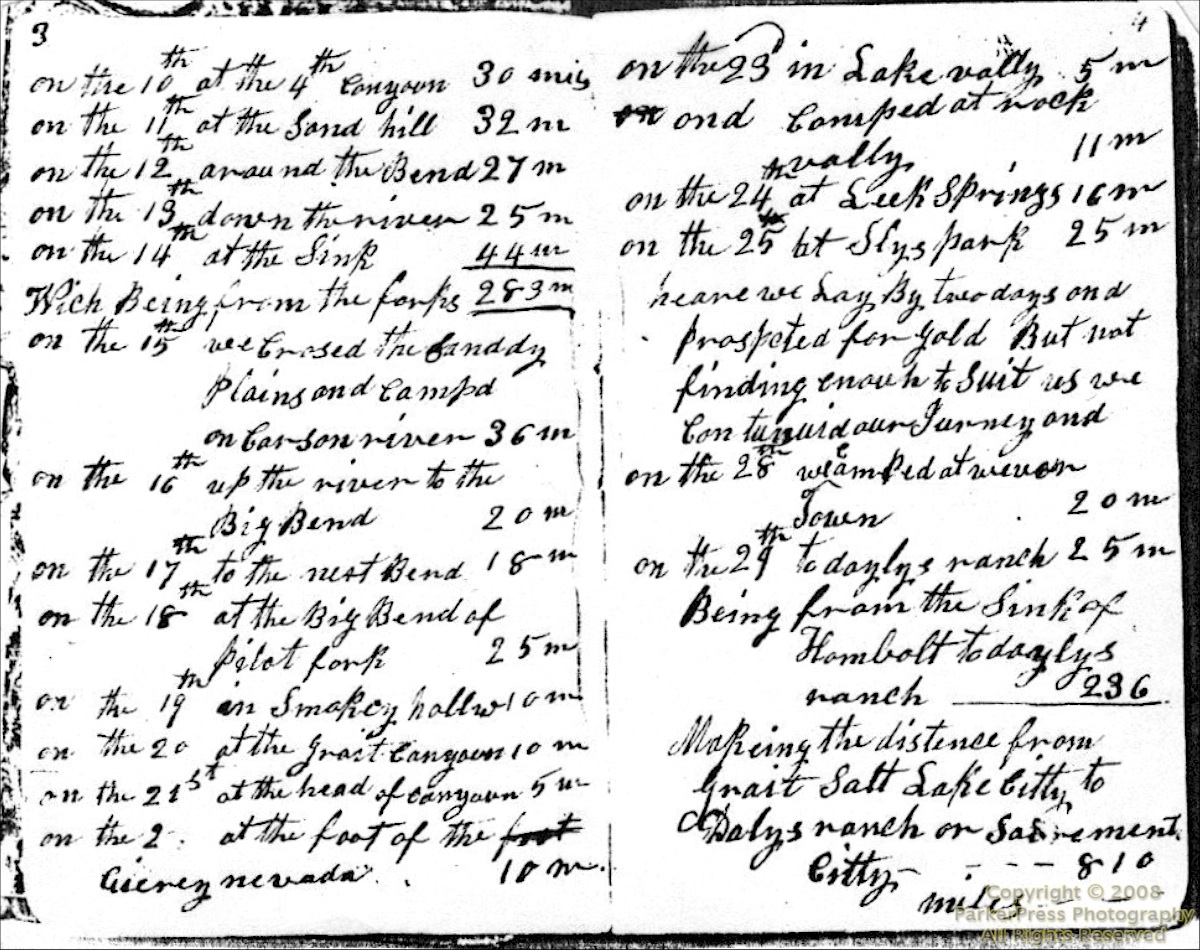 3
on the 10th at the 4th Canyoun 30 mils
on the 11th at the Sand hill 32 m
on the 12th around the Bend 27 m
on the 13th down the river 25 m
on the 14th at the Sink 44 m
Wich Being from the forks 283 m
on the 15th we Crosed the Sanddy
Plains and Campd
on Carson river 36 m
on the 16th up the river to the
Big Bend 20 m
on the 17th to the nest Bend 18 m
on the 18th at the Big Bend of
Pilot fork 25 m
on the 19th in Smokey hollw 10 m
on the 20 at the grait Canyoun 10 m
on the 21st at the head of Canyoun 5 m
on the 2 at the foot of the foot
Cierey nevada 10 m
4
on the 23 in Lake vally 5 m
on and Camped at rock
vally 11 m
on the 24th at Leek Springs 16 m
on the 25th at Slys park 25 m
heare we Lay By two days and
Prospected for gold But not
finding enouh to Suit us we
Contunuid our Jurney and
on the 28th we Camped at wever
Town 20 m
on the 29th to daylys ranch 25 m
Being from the Sink of
Hombolt to daylys
ranch 236
Makeing the distence from
grait Salt Lake Citty to
Dalys ranch or Sacrement
Citty - - - - 810
miles - - -
Copyright © 2008
ParkerPress Photography
All Rights Reserved